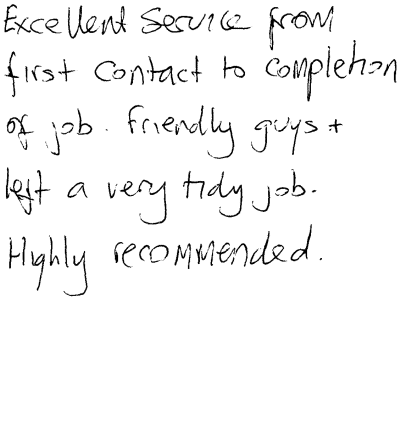 Excellent Service from
first contact to completion
of job. Friendly guys +
left a very tidy job.
Highly recommended.